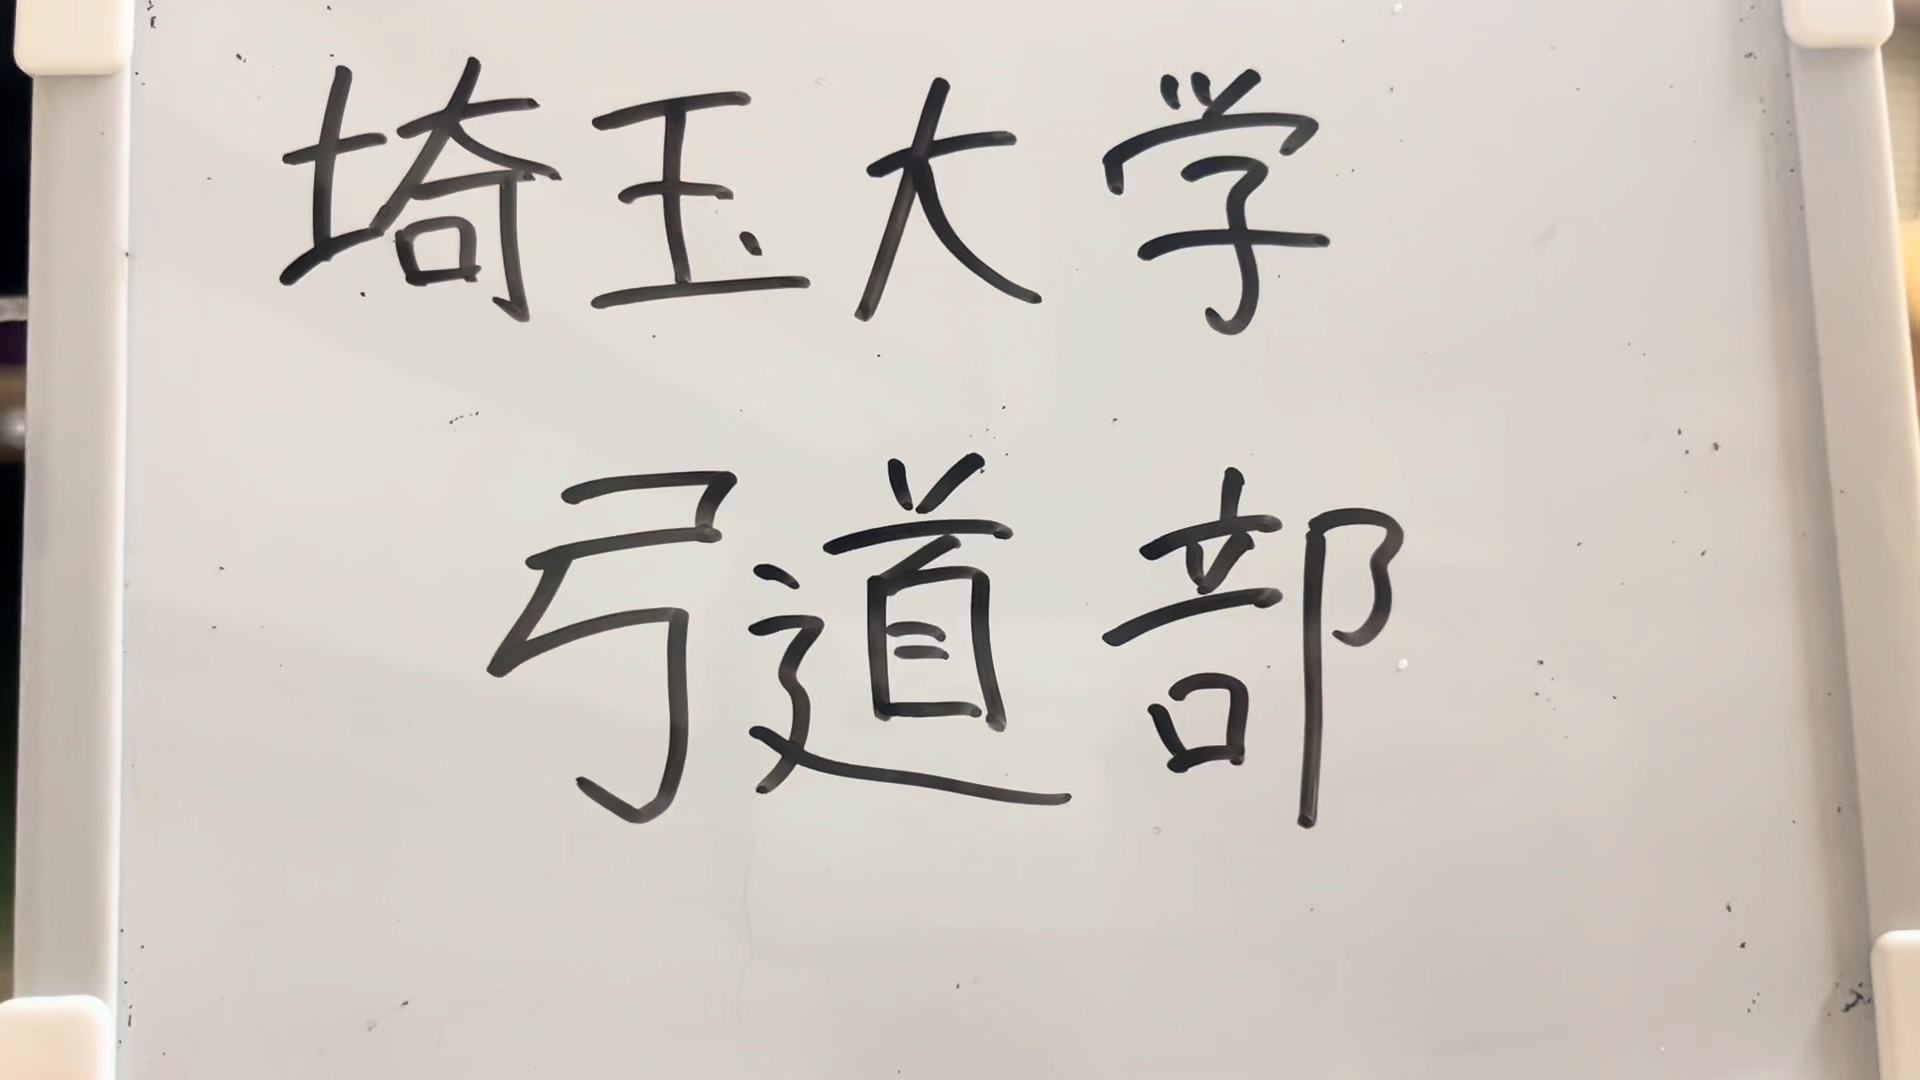 埼玉大学
弓道部